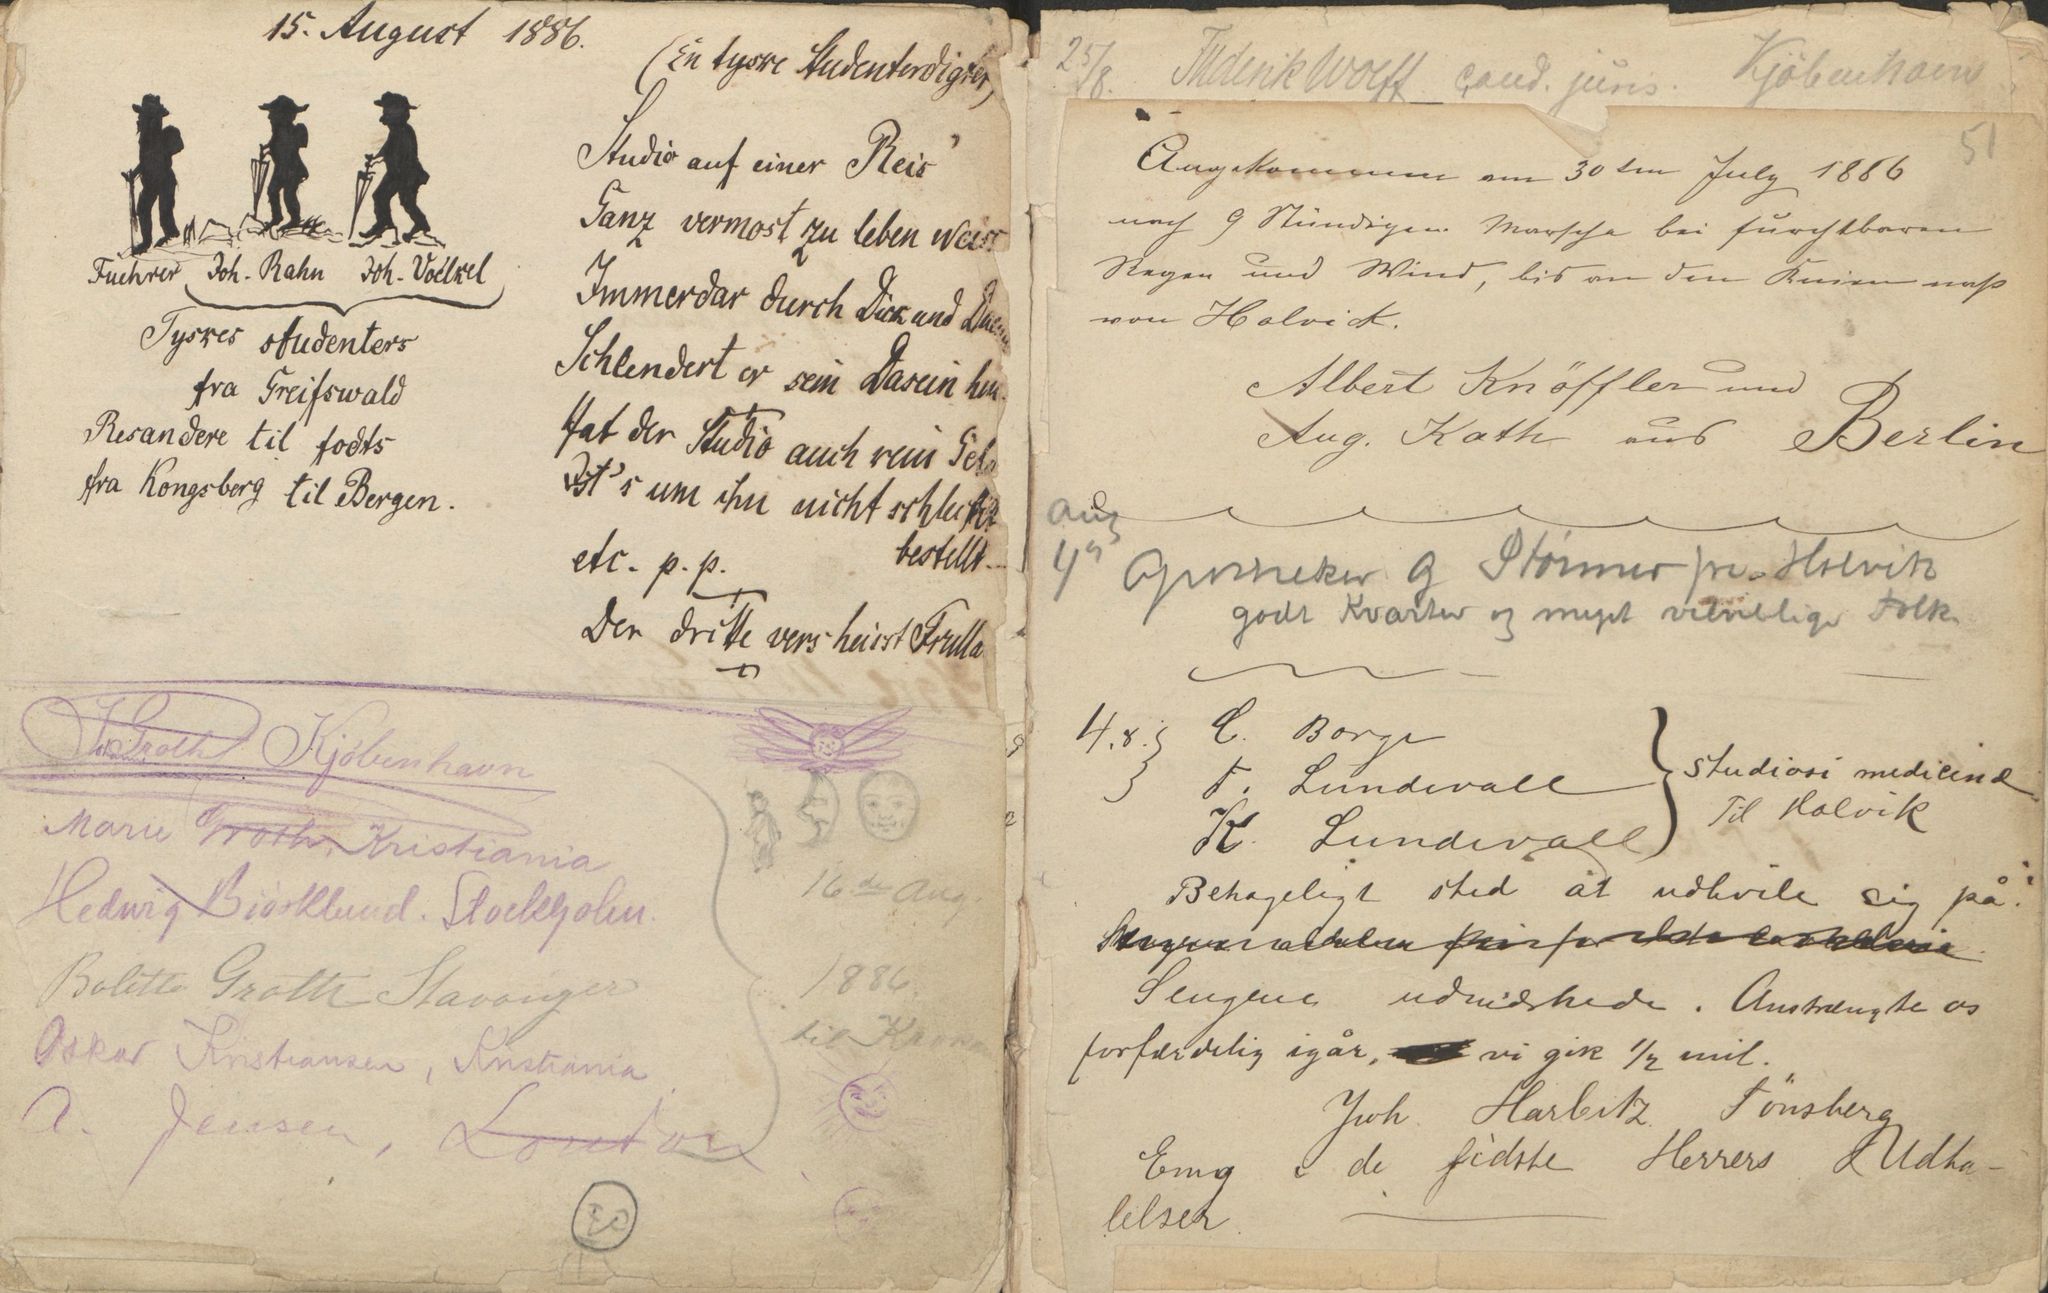 15. August 1886.
(En tyske Studenterdigter)
Fuehrer Joh. Rahn Joh. Voelkel
Tyskes studenters
fra Greifswald
Resandere til fodts
fra Kongsberg til Bergen.
Studio auf einer Reis'
Ganz vermost zu leben weiss
Immerdar durch Dick und
Schlendert er sein Dasein hin.
Hat der Studio auch kein Geld
Ist's um ihn nicht schlecht
bestellt.
etc. p. p.
Der dritte vers heisst Frulla
Groth Kjöbenhavn
Marie Groth, Kristiania
Hedwig Björklund. Stockholm.
Bolette Groth Stavanger
Oskar Kristiansen, Kristiania
A. Jensen, London
16de Aug.
1886.
til
25/8. Frederik Wolff cand. juris. Kjöbenhavn
51
Angekommen am 30ten July 1886
nach 9 Stündigen Marsche bei furchtbaren
Regen und Wind, bis an den Knieen naß
von Holvick.
Albert Knöffler und
Aug. Kath aus Berlin
Aug
4de Apotheker G Störmer fra Holvik
godt Kvarter og meget velvillige Folk.
4.8. C. Borge
F. Lundevall
K. Lundevall
studiosi medicinæ
Til Holvik
Behageligt sted at udhvile sig på.
Sengene udmærkede. Anstrængte os
forfærdelig igår, vi gik 1/2 mil.
Joh. Harbitz Tönsberg
Enig i de sidste Herrers Udta-
lelser.